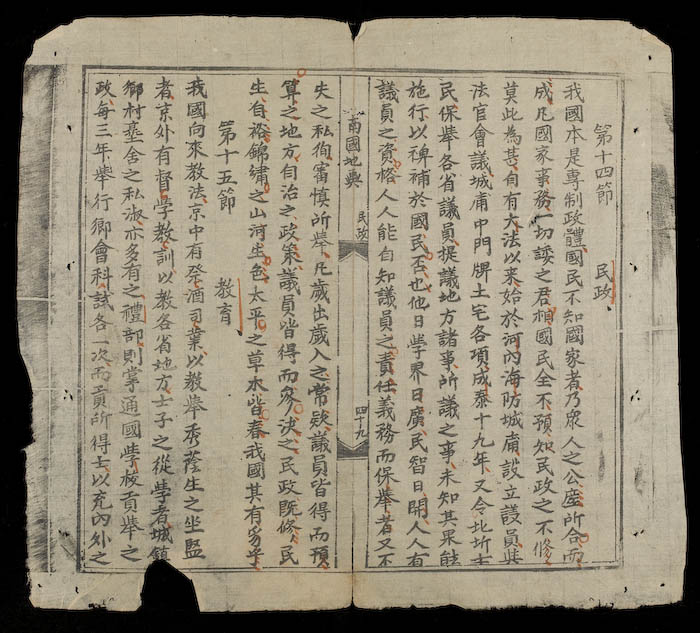 第十四節
民政
我國本是專制政體國民不知國家者乃眾人之公座所合而
成凡國家事務一切諉之君相國民全不預知民政之不修
莫此為甚自有大法以來始於河內海防城庯設立議員與
法官會議城庯中門牌土宅各項成泰十九年又令北圻士
民保舉各省議員提議地方諸事所議之事未知其果能
施行以裨補於國民否也他日學界日廣民智日開人人有
議員之資格人人能自知議員之責任義務而保舉者又不
南國地輿
民政
四十九
失之私徇審慎所舉凡歲出歲入之常款議員皆得而預
算之地方自治之政策議員皆得而參決之民政既修民
生自裕錦繡之山河生色太平之草木皆春我國其有豸乎
第十五節
教育
我國向來教法京中有祭酒司業以教舉秀蔭生之坐監
者京外有督學教訓以教各省地方士子之從學者城鎮
鄉村塾舍之私淑亦多有之禮部則掌通國學校貢舉之
政每三年舉行鄉會科試各一次而貢所得士以充內外之